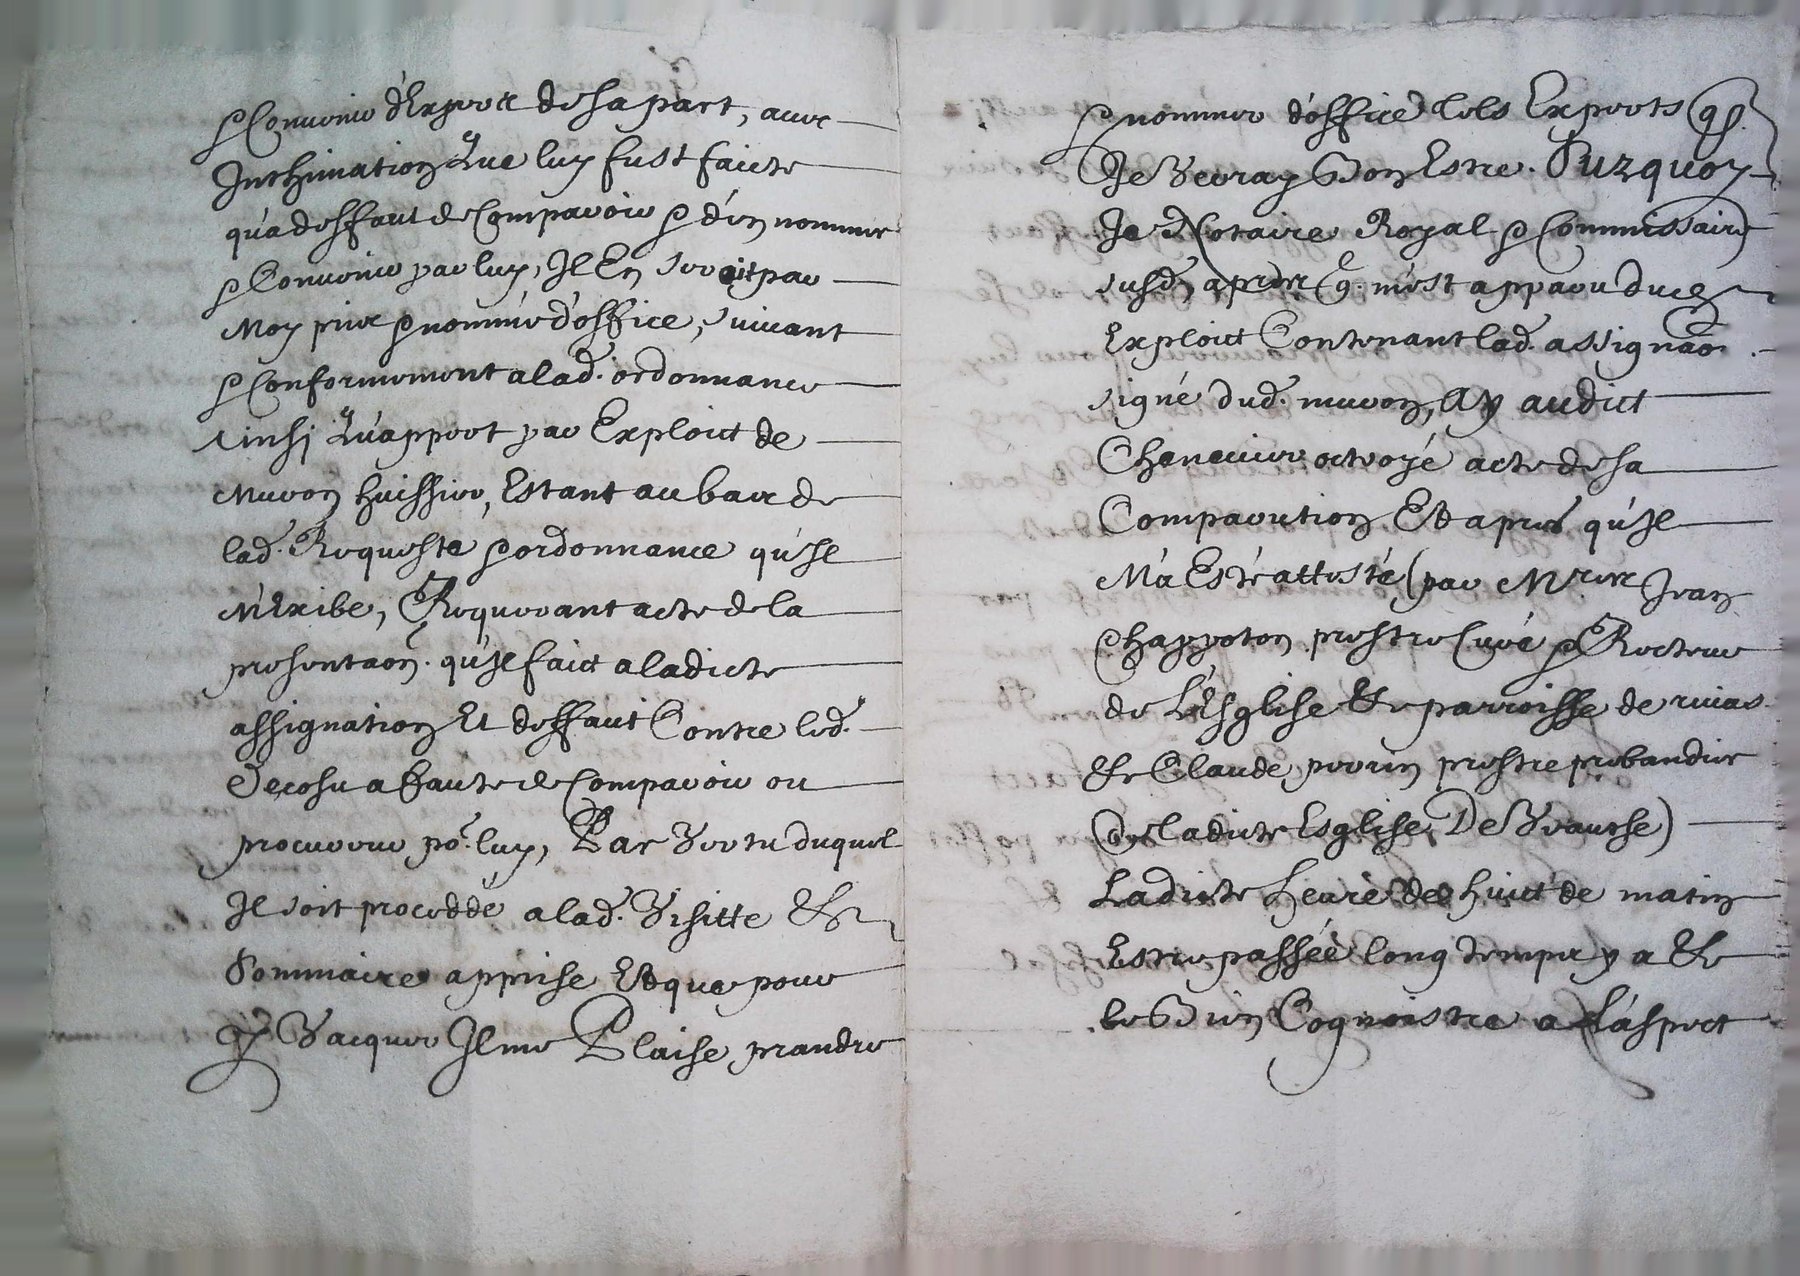 & Convenir d'Expert de sa part, avec
Inthimation Que luy fust faicte
qu'a deffaut de Comparoir & d'en nommer
& Convenir par luy, Il En seroit par
Moy prins & nommé d'office, suivant
& Conformement a lad. ordonnance
ainsi Qu'appert par Exploict de
Muron huissier, Estant au bas de
lad. Requeste & ordonnance qu'Il
M'Exibe, Requerant acte de la
presentaõn. qu'Il faict a ladicte
assignation Et deffaut Contre led.
Decosu a faute de Comparoir ou
procureur po.r luy, Par Vertu duquel
Il soit proceddé a lad. Visitte &
Sommaire apprise Et que pour
y Vacquer Il me Plaise prandre
& nommer d'office tels Experts q.
Je Verray Bon Estre. Surquoy
Je Notaire Royal & Commissaire
susd. apres q. m'est apparu dud.
Exploict Contenant lad. assignaõn.
signé dud. muron, Ay audict
Chenevier octroyé acte de sa
Comparution Et apres qu'Il
M'a Esté attesté (par M.re Jean
Chappoton prestre Curé & Recteur
de L'Esglise & parroisse de rivas
& Claude perrin prestre prebandier
En ladicte Esglise De Veauche)
Ladicte heure de huict de matin
Estre passée long temps y a &
le Bien Cognoistre a L'aspect